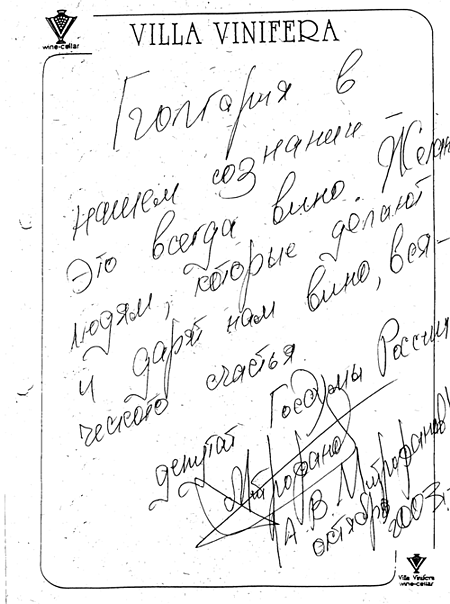 wine-cellar
VILLA VINIFERA
Болгария в
нашем сознании -
Это всегда вино. Желаю
людям, которые делают
и дарят нам вино, вся-
ческого счастья.
депутат Госдумы России
Митрофанов
А. В. Митрофанов
октябрь 2003г.
Villa Vinifera
wine-cellar